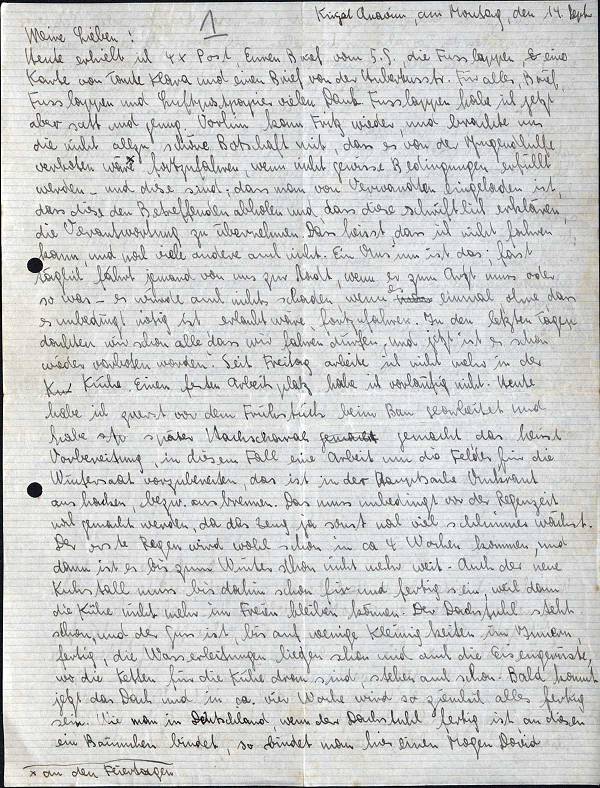 1
Kirjat Anavim, am Montag, den 14. Sept.
Meine Lieben!
Heute erhielt ich 4x Post. Euren Brief vom 5.9., die Fusslappen & eine
Karte von Tante Klara und einen Brief von der Unterhusstr. Für alles, Brief,
Fusslappen und Luftpostpapier vielen Dank. Fusslappen habe ich jetzt
aber satt und genug. Vorhin kam Fritz wieder, und brachte uns
die nicht allzu schöne Botschaft mit, dass es von der Jugendhilfe
verboten wäre x fortzufahren, wenn nicht gewisse Bedingungen erfüllt
werden – und diese sind: dass man von Verwandten eingeladen ist,
dass diese den Betreffenden abholen und, dass diese schriftlich erklären,
die Verantwortung zu übernehmen. Das heisst dass ich nicht fahren
kann und noch viele andere auch nicht. Ein Unsinn ist das; fast
täglich fährt jemand von uns zur Stadt, wenn er zum Arzt muss oder
so was – es würde auch nichts schaden wenn es einmal ohne dass
es unbedingt nötig ist erlaubt wäre, fortzufahren. In den letzten Tagen
dachten wir schon alle dass wir fahren dürfen, und jetzt ist es schon
wieder verboten worden. Seit Freitag arbeite ich nicht mehr in der
Küche. Einen festen Arbeitsplatz habe ich vorläufig nicht. Heute
habe ich zuerst vor dem Frühstück beim Bau gearbeitet und
habe später gemacht das heisst
Vorbereitung, in diesem Fall eine Arbeit um die Felder für die
Wintersaat vorzubereiten, das ist in der Hauptsache Unkraut
aushacken, bezw. ausbrennen. Das muss unbedingt vor der Regenzeit
noch gemacht werden, da das Zeug ja sonst noch viel schlimmer wächst.
Der erste Regen wird wohl schon in ca 4 Wochen kommen, und
dann ist es bis zum Winter schon nicht mehr weit. Auch der neue
Kuhstall muss bis dahin schon fix und fertig sein, weil dann
die Kühe nicht mehr im Freien bleiben können. Der Dachstuhl steht
schon, und der Guss ist, bis auf wenige Kleinigkeiten im Innern,
fertig, die Wasserleitungen liegen schon und auch die Eisengerüste,
wo die Ketten für die Kühe dran sind, stehen auch schon. Bald kommt
jetzt das Dach und in ca. vier Woche wird so ziemlich alles fertig
sein. Wie man in Deutschland wenn der Dachstuhl fertig ist an diesen
ein Bäumchen bindet, so bindet man hier einen Mogen David
x an den Feiertagen